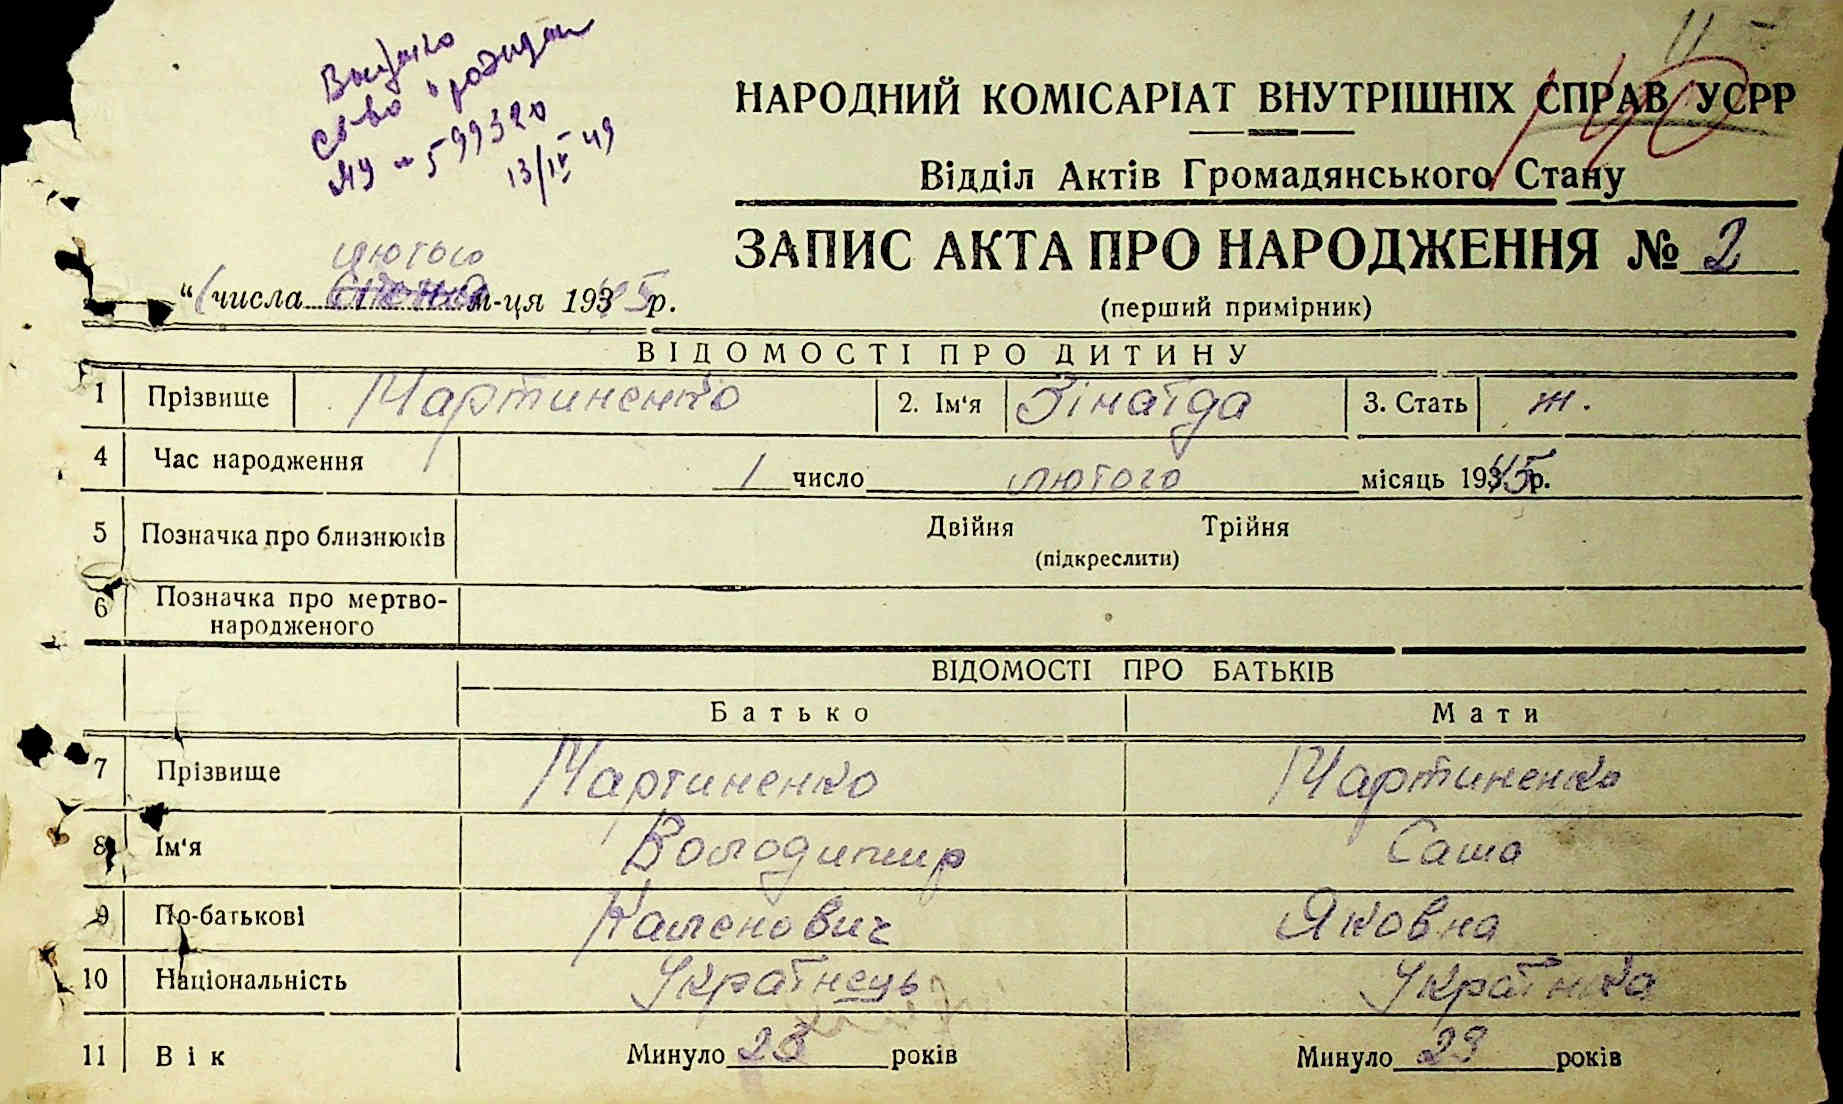 Выдано
св-во о рождении
МУ - 599320
13/IV 49
11 -
140
НАРОДНИЙ КОМІСАРІАТ ВНУТРІШНІХ СПРАВ УСРР
Відділ Актів Громадянського Стану
ЗАПИС АКТА ПРО НАРОДЖЕННЯ № 2
(перший примірник)
лютого
"1 числа м-ця 1945 р.
ВІДОМОСТІ ПРО ДИТИНУ
1 Прізвище Мартиненко 2. Ім'я Зінаїда 3. Стать ж.
4 Час народження 1 число лютого місяць 1945 р.
5 Позначка про близнюків Двійня Трійня
(підкреслити)
6 Позначка про мертво-
народженого
ВІДОМОСТІ ПРО БАТЬКІВ
Батько Мати
7 Прізвище Мартиненко Мартиненко
8 Ім'я Володимир Саша
9 По-батькові Каленович Яковна
10 Національність Українець Українка
11 Вік Минуло 23 років Минуло 23 років